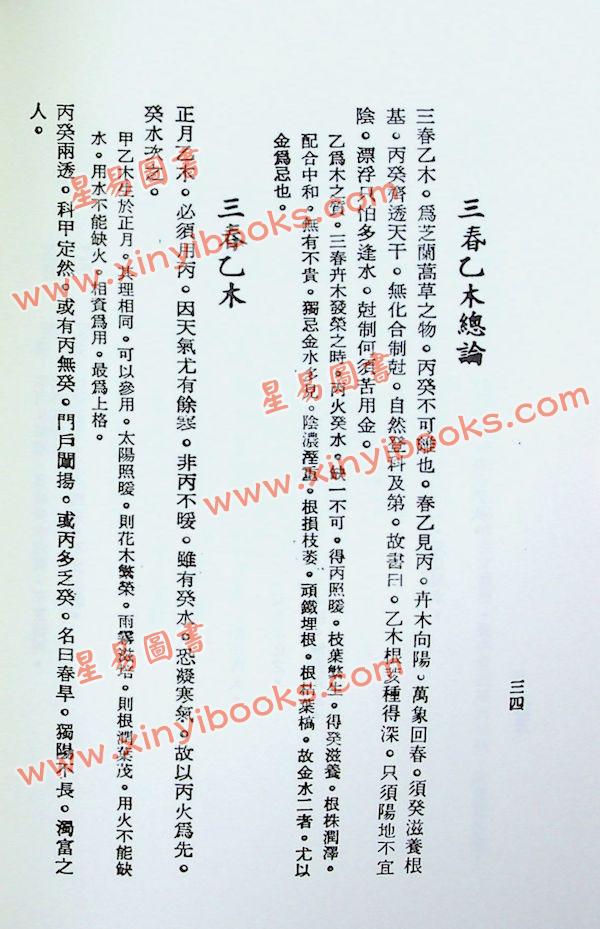 三春乙木總論
三春乙木。爲芝蘭蒿草之物。丙癸不可離也。春乙見丙。卉木向陽。萬象回春。須癸滋養根
基。丙癸齊透天干。無化合制尅。自然登科及第。故書曰。乙木根荄種得深。只須陽地不宜
陰。漂浮只怕多逢水。尅制何須苦用金。
乙爲木之質。三春卉木發榮之時。丙火癸水。缺一不可。得丙照暖。枝葉繁生。得癸滋養。根株潤澤。
配合中和。無有不貴。獨忌金水多見。陰濃溼重。根損枝萎。頑鐵埋根。根枯葉槁。故金水二者。尤以
金爲忌也。
三春乙木
正月乙木。必須用丙。因天氣尤有餘寒。非丙不暖。雖有癸水。恐凝寒氣。故以丙火爲先。
癸水次之。
甲乙木生於正月。其理相同。可以參用。太陽照暖。則花木繁榮。雨露滋培。則根潤葉茂。用火不能缺
水。用水不能缺火。相資爲用。最爲上格。
丙癸兩透。科甲定然。或有丙無癸。門戶闡揚。或丙多乏癸。名曰春旱。獨陽不長。濁富之
人。
三四
星易圖書
www.xinyibooks.com
星易圖書
www.xinyibooks.com
星易圖書
www.xinyibooks.com